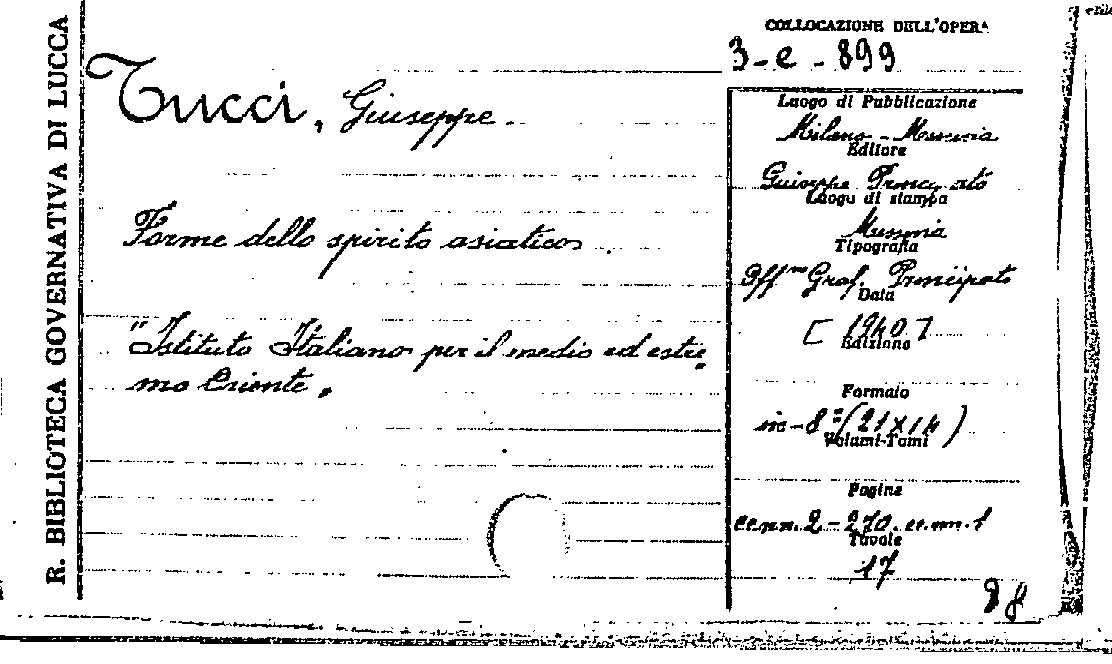 R. BIBLIOTECA GOVERNATIVA DI LUCCA
COLLOCAZIONE DELL'OPERA
3-e-899
Tucci, Giuseppe.
Forme dello spirito asiatico.
"Istituto Italiano per il medio ed estre
mo Oriente„
Luogo di Pubblicazione
Milano - Messina
Editore
Giuseppe
Luogo di stampa
Messina
Tipografia
Off Graf. Principato
Data
[1940]
Edizione
Formato
in-8°(21x14)
Volumi-Tomi
Pagine
cc.nn.2-270.cc.nn.1
Tavole
17